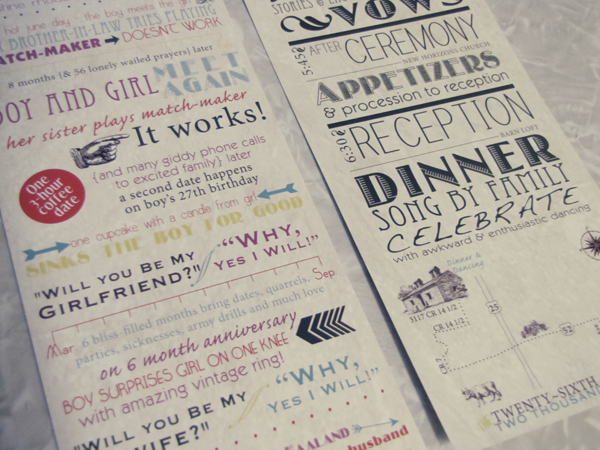 hot june day - the boy meets the girl
BROTHER-IN-LAW TRIES PLAYING
MATCH-MAKER DOESN'T WORK
8 months (& 56 lonely wailed prayers) later
BOY AND GIRL MEET AGAIN
her sister plays match-maker
It works!
One 3-hour coffee date
{and many giddy phone calls
to excited family} later
a second date happens
on boy's 27th birthday
one cupcake with a candle from girl
SINKS THE BOY FOR GOOD
"WILL YOU BE MY
GIRLFRIEND?"
"WHY,
YES I WILL!"
Mar
Sep
6 bliss-filled months bring dates, quarrels,
parties, sicknesses, army drills and much love
on 6 month anniversary
BOY SURPRISES GIRL ON ONE KNEE
with amazing vintage ring!
"WILL YOU BE MY
WIFE?"
"WHY,
YES I WILL!"
husband
STORIES @
VOWS
5:45@
AFTER CEREMONY
NEW HORIZONS CHURCH
APPETIZERS
& procession to reception
6:30@
RECEPTION
BARN LOFT
DINNER
SONG BY FAMILY
CELEBRATE
with awkward & enthusiastic dancing
Dinner &
Dancing
3117 CR 14 1/2
CR 14 1/2
25
52
TWENTY-SIXTH
TWO THOUSAND